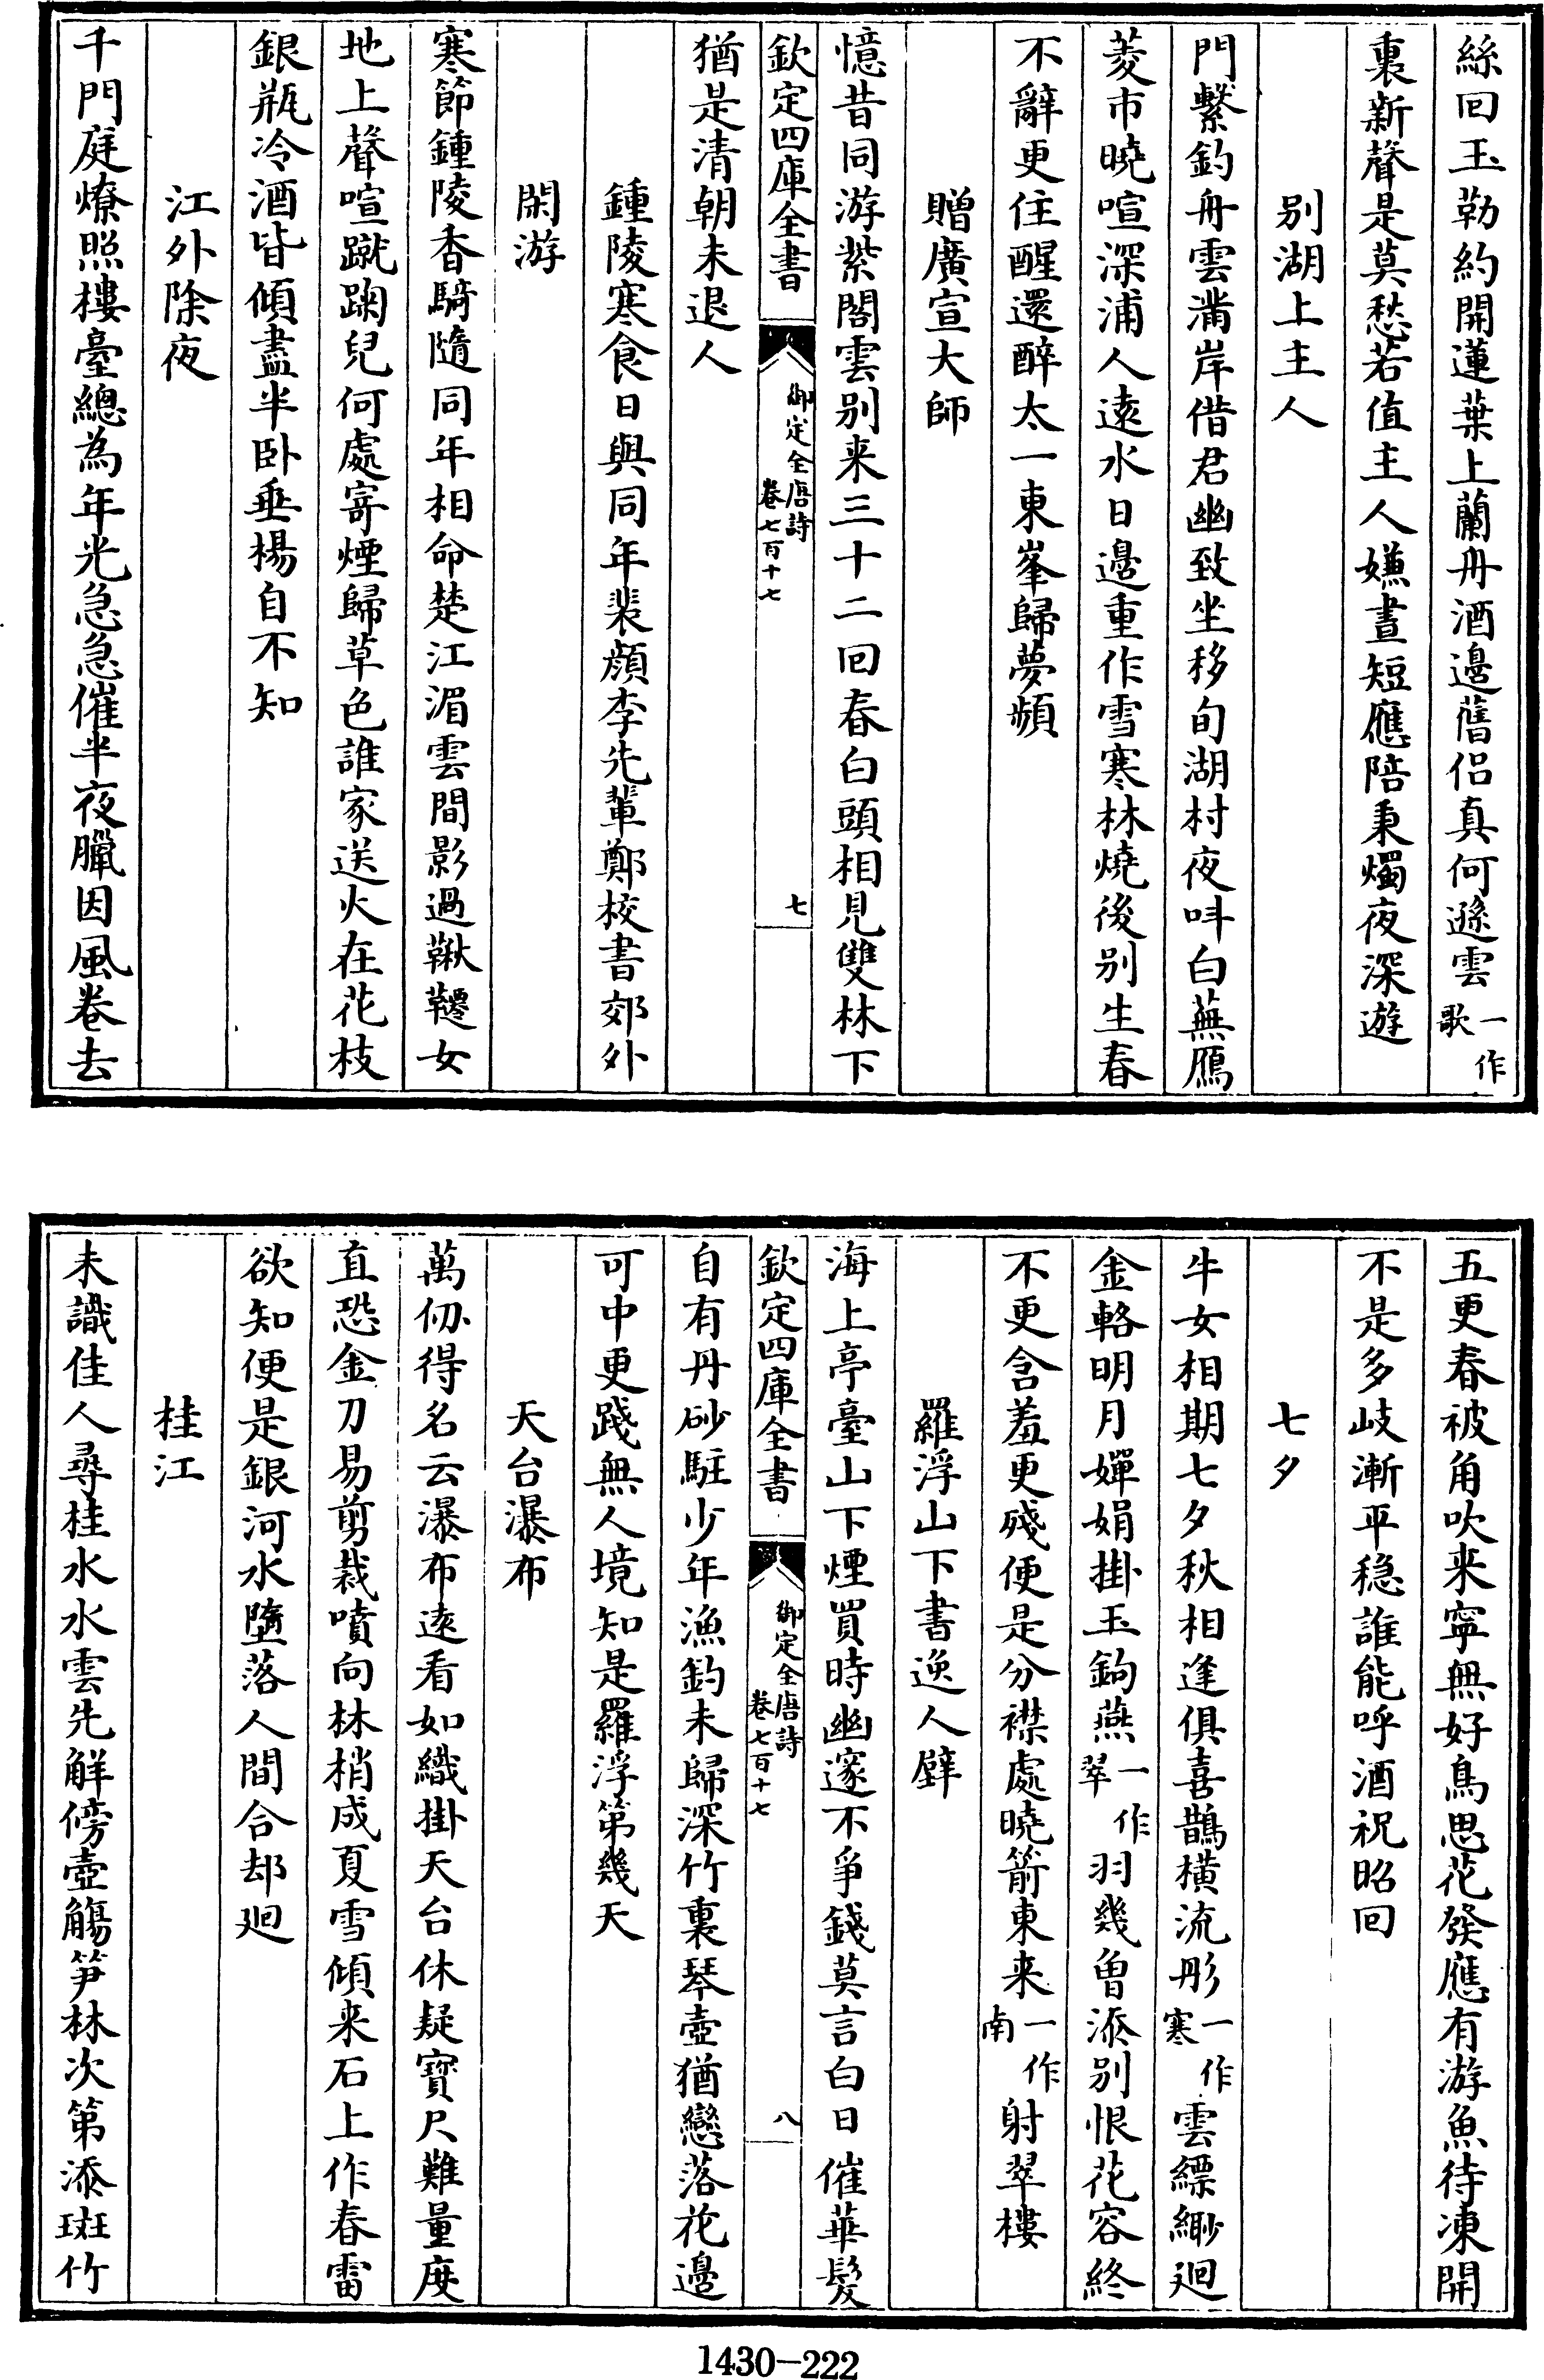 絲回玉勒約開蓮葉上蘭舟酒邊舊侶真何遜雲一作歌
裏新聲是莫愁若值主人嫌晝短應陪秉燭夜深遊
別湖上主人
門繫釣舟雲滿岸借君幽致坐移旬湖村夜呌白蕪鴈
菱市曉喧深浦人遠水日邊重作雪寒林燒後別生春
不辭更住醒還醉太一東峯歸夢頻
贈廣宣大師
憶昔同游紫閣雲別来三十二回春白頭相見雙林下
欽定四庫全書
御定全唐詩
卷七百十七
七
猶是清朝未退人
鍾陵寒食日與同年裴顔李先輩鄭校書郊外
閑游
寒節鍾陵香騎隨同年相命楚江湄雲間影過鞦韆女
地上聲喧蹴踘兒何處寄煙歸草色誰家送火在花枝
銀瓶冷酒皆傾盡半卧垂楊自不知
江外除夜
千門庭燎照樓臺總為年光急急催半夜臘因風卷去
五更春被角吹来寧無好鳥思花發應有游魚待凍開
不是多岐漸平穏誰能呼酒祝昭回
七夕
牛女相期七夕秋相逢俱喜鵲橫流彤一作寒雲縹緲廻
金輅明月嬋娟掛玉鉤燕一作翠羽幾曾添別恨花容終
不更含羞更殘便是分襟處曉箭東来一作南射翠樓
羅浮山下書逸人壁
海上亭臺山下煙買時幽邃不爭錢莫言白日催華髮
欽定四庫全書
御定全唐詩
卷七百十七
八
自有丹砂駐少年漁釣未歸深竹裏琴壺猶戀落花邊
可中更踐無人境知是羅浮第幾天
天台瀑布
萬仞得名云瀑布遠看如織掛天台休疑寶尺難量度
直恐金刀易剪裁噴向林梢成夏雪傾来石上作春雷
欲知便是銀河水墮落人間合却廻
桂江
未識佳人尋桂水水雲先解傍壺觴笋林次第添斑竹
1430-222